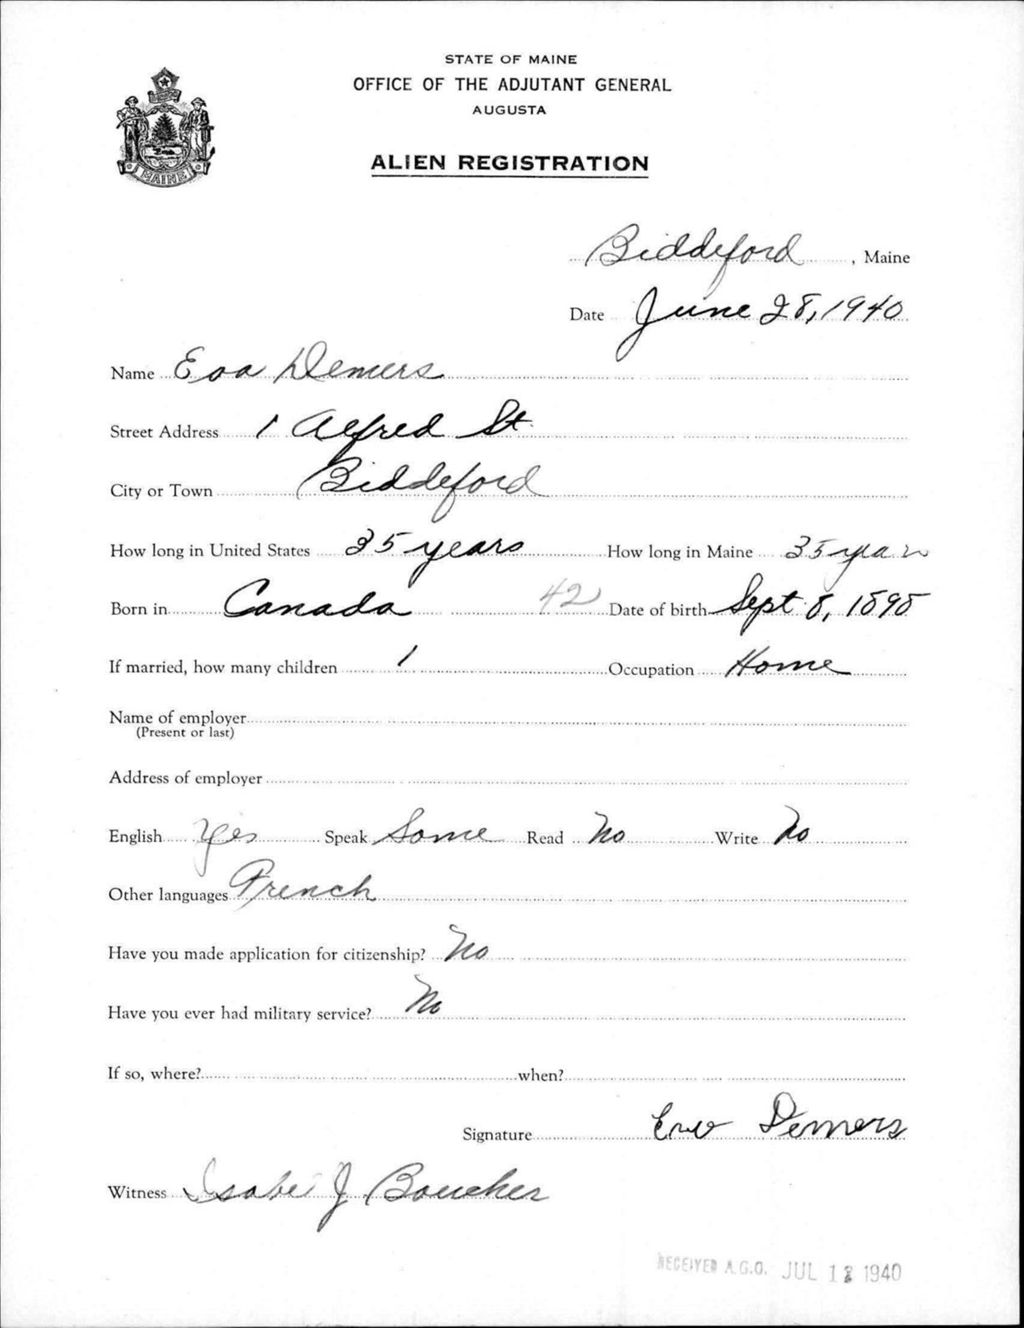 STATE OF MAINE
OFFICE OF THE ADJUTANT GENERAL
AUGUSTA
ALIEN REGISTRATION
MAINE
Biddeford, Maine
Date June 28, 1940
Name Eva Demers
Street Address 1 Alfred St
City or Town Biddeford
How long in United States 35 years How long in Maine 35 years
Born in Canada 42 Date of birth Sept 8, 1898
If married, how many children 1 Occupation Home
Name of employer
(Present or last)
Address of employer
English Yes Speak Some Read No Write No
Other languages French
Have you made application for citizenship? No
Have you ever had military service? No
If so, where? when?
Signature Eva Demers
Witness J Boucher
RECEIVED A.G.O. JUL 1940